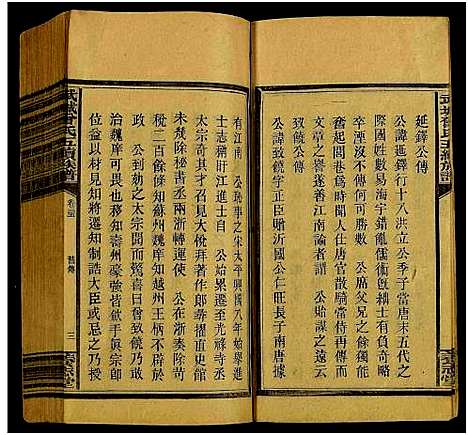 延鐸公傳
公諱延鐸行十八洪立公季子當唐末五代之
際國姓數易海宇錯亂儒衡氈裘士有負奇略
卒湮沒不傳何可勝數　公席父兄之餘獨能
奮起閭巷爲時聞人仕唐官散騎常侍再傳而
文章之譽遂香江南論者謂　公始謀之遠云
致饒公傳
公諱致饒字正臣贈沂國公仁旺長子南唐據
有江南　公恥事之宋太平興國八年始舉進
士志稱旴江進士自　公始累遷至光祿寺丞
太宗奇其才召見大悅拜著作郎等擢直史館
未幾除秘書丞兩浙轉運使　公在浙奏除苛
稅二百餘條知蘇州魏庠知越州王柄不辟於
政　公劾之太宗聞而驚喜曰曾饒乃敢
治魏庠可畏也移知壽州豪強皆歛手真宗即
位益以材見知將遷知制誥大臣或忌之乃
武城曾氏五續族譜
卷三
舊傳
三